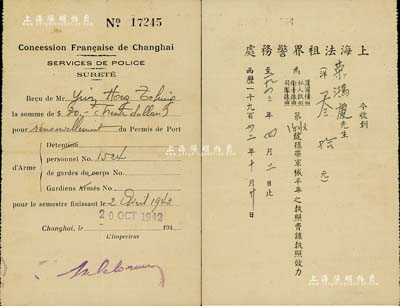 Nº 17245
Concession Française de Changhai
SERVICES DE POLICE
SURETÉ
Reçu de Mr.
la somme de $ 30,- (trente dollars)
pour renouvellement du Permis de Port
Détention
personnel No.
d'Arme
de gardes du corps No.
Gardiens Armés No.
pour le semestre finissant le 2 Avril 1943
20 OCT 1942
Changhai, le 194
L'Inspecteur
上海法租界警務處
今收到
榮鴻慶先生
(洋 叁拾 元)
為
第 號携帶軍械半年之執照費該執照效力
至 年 四 月 二 日止
西歷一千九百四二年十月廿日
上海陽明拍賣